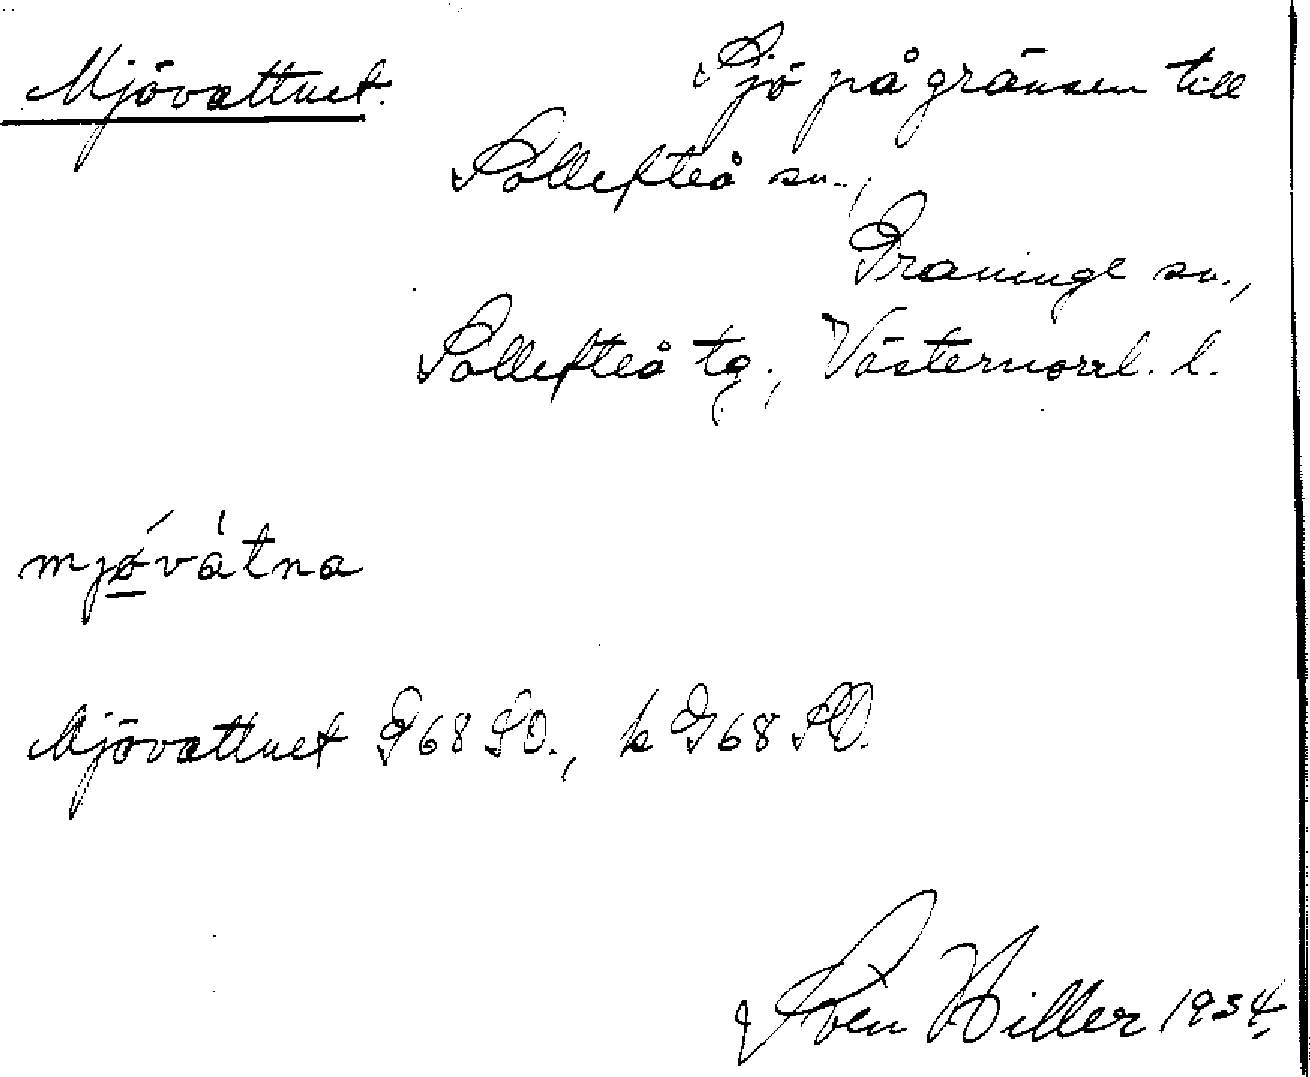 Mjövattnet. Sjö på gränsen till
Sollefteå sn.,
Graninge sn.,
Sollefteå tg., Västernorrl. l.
mjǿvàtna
Mjövattnet G68 SO., k G68 SO.
Sven Hiller 1934